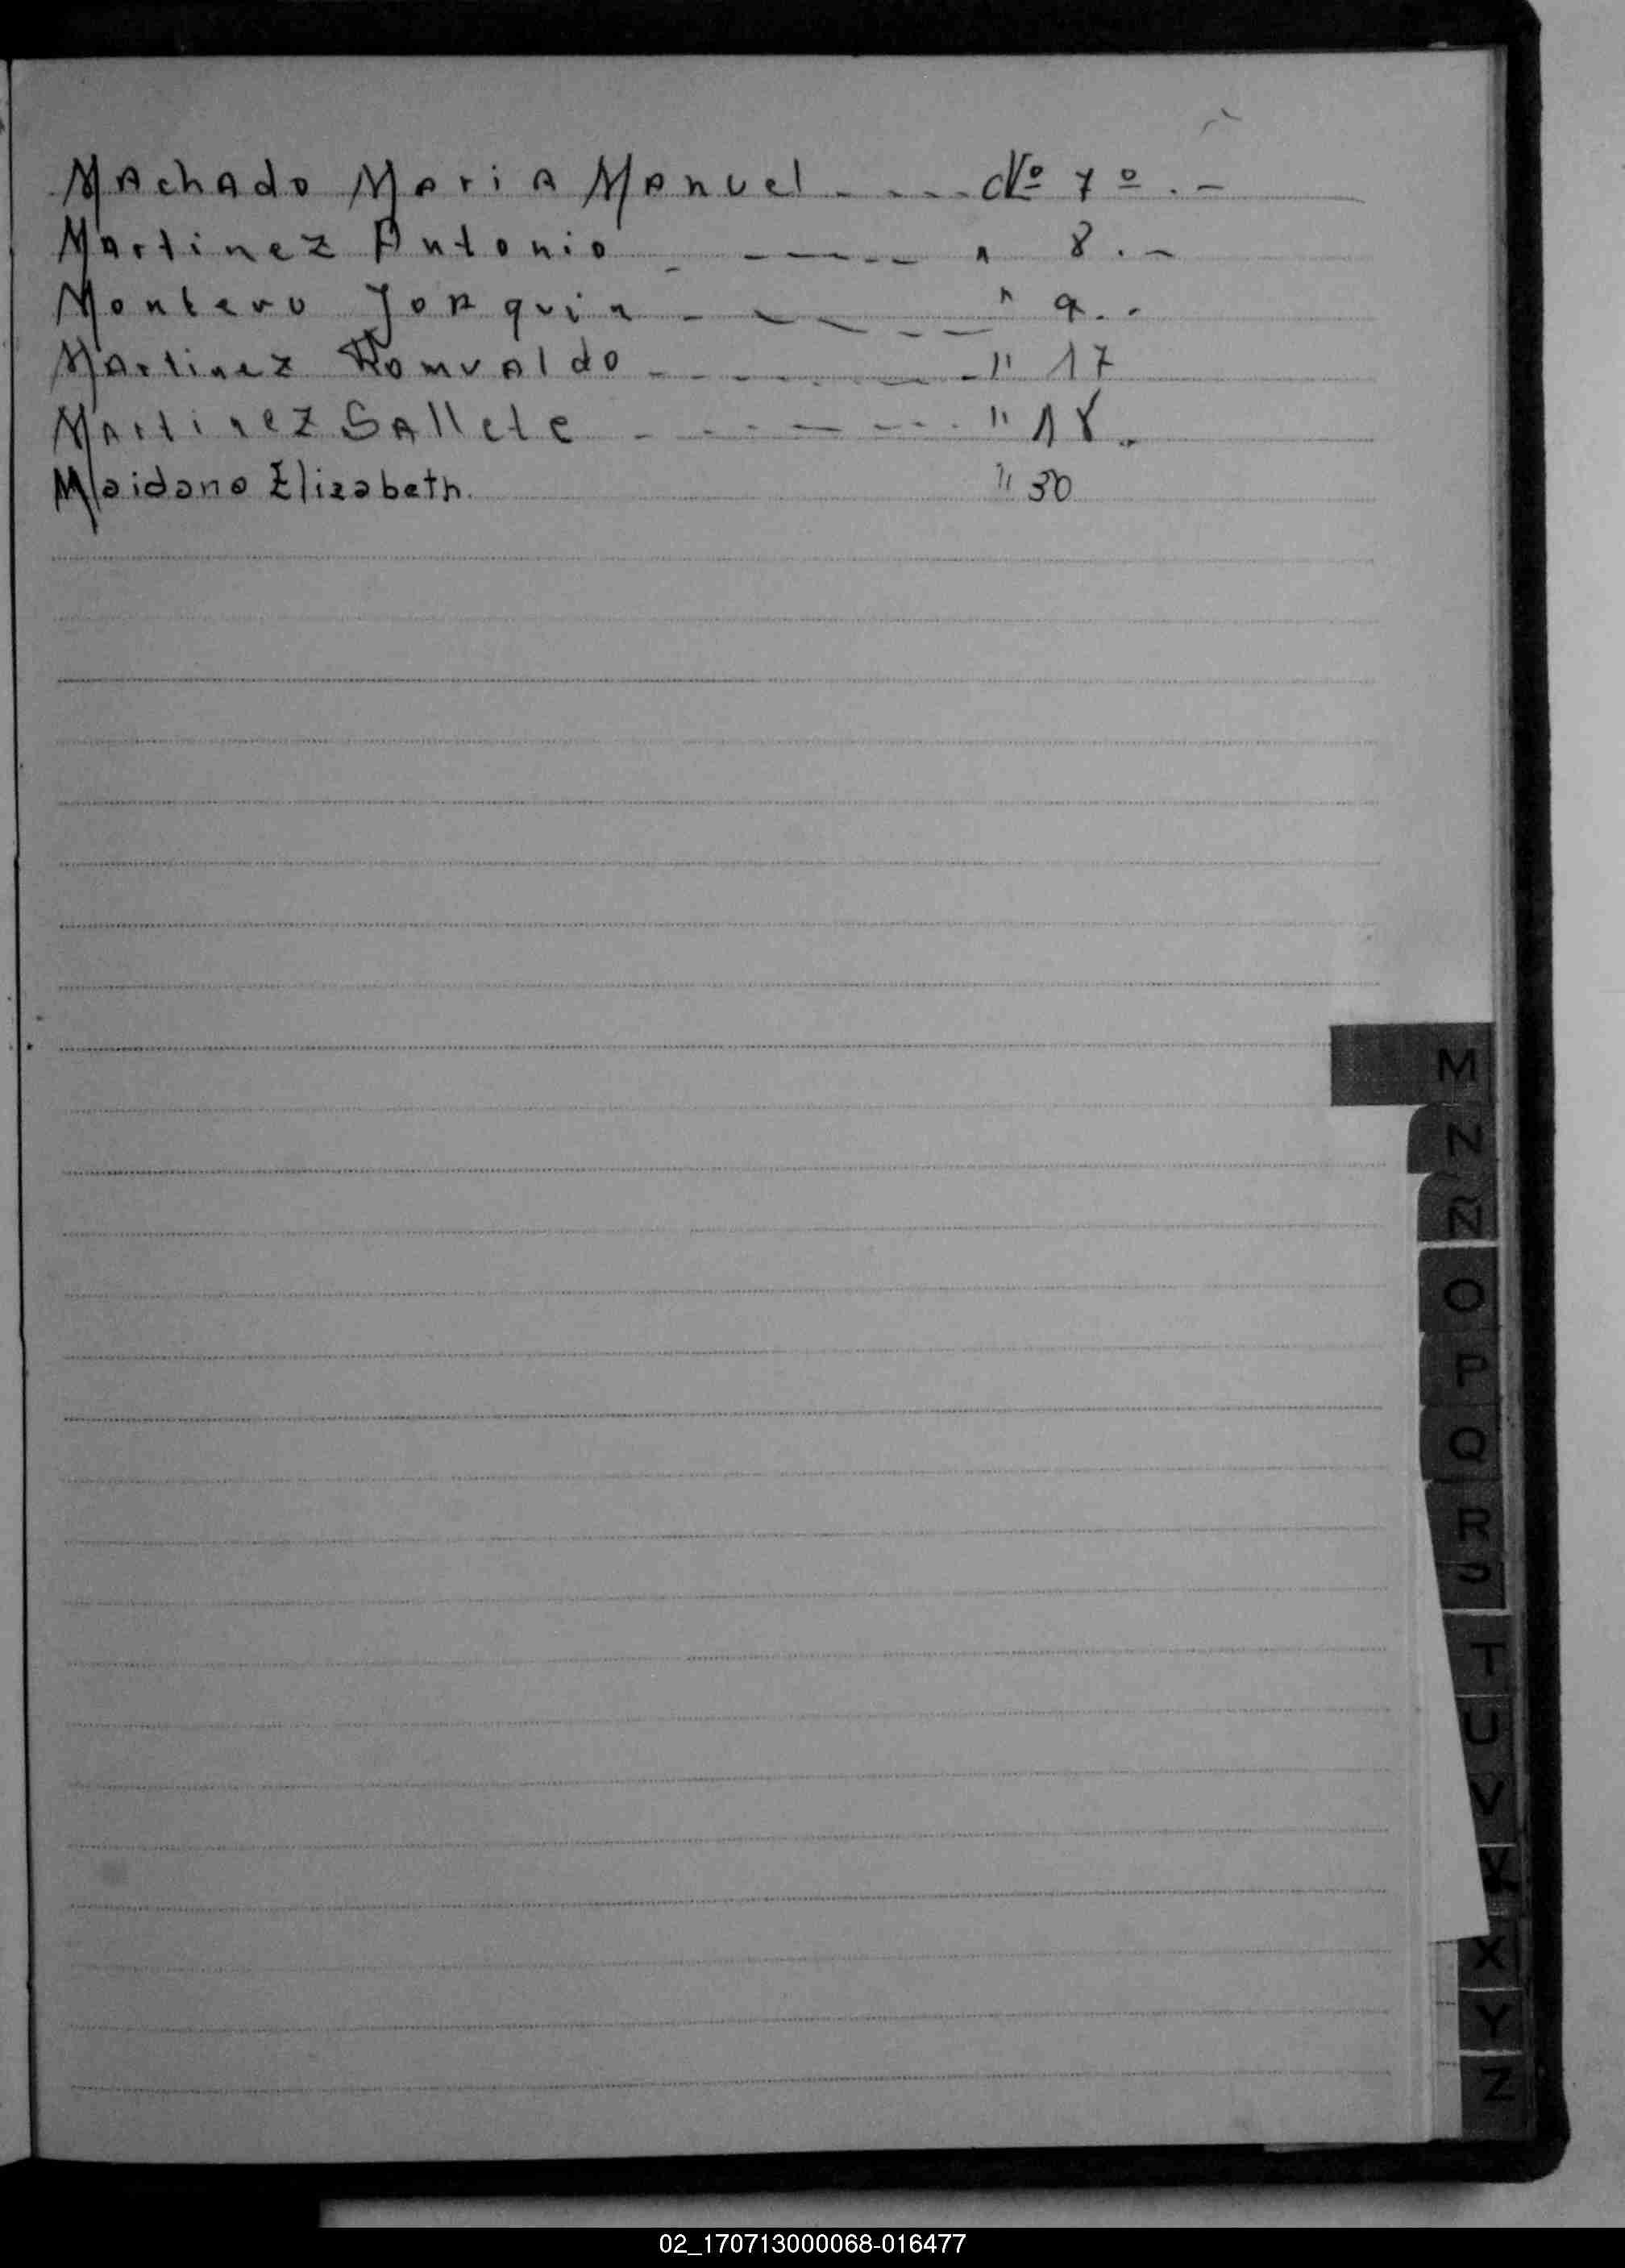 Machado Maria Manuel - - - - Nº 7º . -
Martinez Antonio - - - - - - " 8 . -
Montero Joaquin - - - - - - " 9 . -
Martinez Romualdo - - - - - - " 17
Martinez Sallete - - - - - - - " 18 .
Maidano Elizabeth. " 30
M
N
Ñ
O
P
Q
R
T
U
V
X
Y
Z
02_170713000068-016477